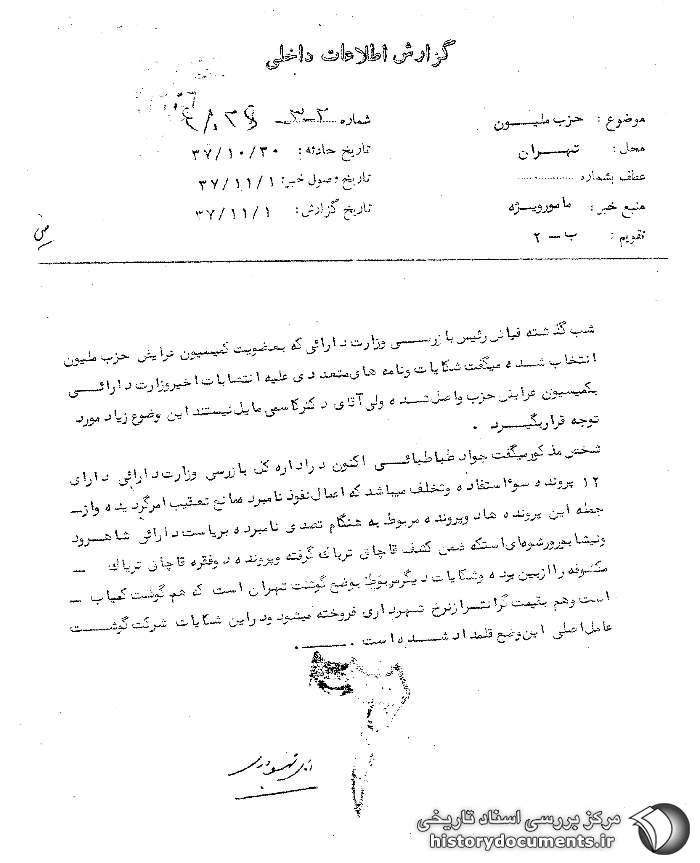 گزارش اطلاعات داخلی
موضوع : حزب ملیـــون
شماره ۳-۳-
محل : تهـــران
تاریخ حادثه : ۳۷/۱۰/۳۰
عطف بشماره ..............
تاریخ وصول خبر : ۳۷/۱۱/۱
منبع خبر : مامورویـژه
تاریخ گزارش : ۳۷/۱۱/۱
تقویم : ب – ۲
شب گذشته رئیس بازرســی وزارت دارائی که بعضویت کمیسیون عرایض حزب ملیون
انتخاب شده میگفت شکایات ونامه های متعددی علیه انتصابات اخیروزارت دارائـــی
بکمیسیون عرایض حزب واصل شــده ولی آقای دکترکاسمی مایل نیستند این وضوع زیاد مورد
توجه قراربگیــرد .
شخص مذکورمیگفت جواد طباطبائــی اکنون دراداره کل بازرسی وزارت دارائی دارای
۱۲ پرونده سوءاستفاده وتخلف میباشد که اعمال نفوذ نامبرده مانع تعقیب امرگردیده واز–
جمله این پرونده ها دوپرونده مربوط به هنگام تصدی نامبرده بریاست دارائی شاهـرود
ونیشابور استکه ضمن کشف قاچاق تریاك گرفته وپرونده دوفقره قاچاق تریاك –
مکشوفه راازبین برده وشکایات دیگرمربوط بوضع گوشت تهران است که هم گوشت کمیاب –
است وهم بقیمت گرانتـرازنرخ شهرداری فروخته میشود ودراین شکایات شرکت گوشــت
عامل اصلی این وضع قلمداد شــده است .ــــــ .
مرکز بررسی اسناد تاریخی
historydocuments.ir